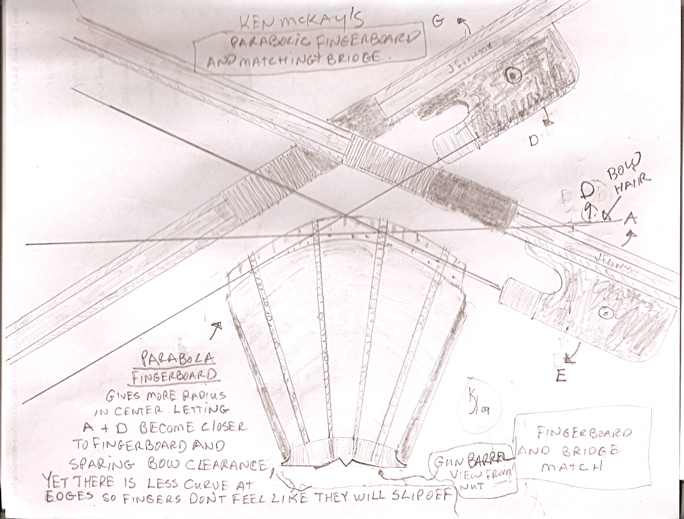 KEN McKAY'S
PARABOLIC FINGERBOARD
AND MATCHING BRIDGE.
G
D
D
BOW
HAIR
A
E
PARABOLA
FINGERBOARD
GIVES MORE RADIUS
IN CENTER. LETTING
A + D BECOME CLOSER
TO FINGERBOARD AND
SPARING BOW CLEARANCE,
YET THERE IS LESS CURVE AT
EDGES SO FINGERS DON'T FEEL LIKE THEY WILL SLIP OFF
GUN BARREL
VIEW FROM
NUT
FINGERBOARD
AND BRIDGE
MATCH